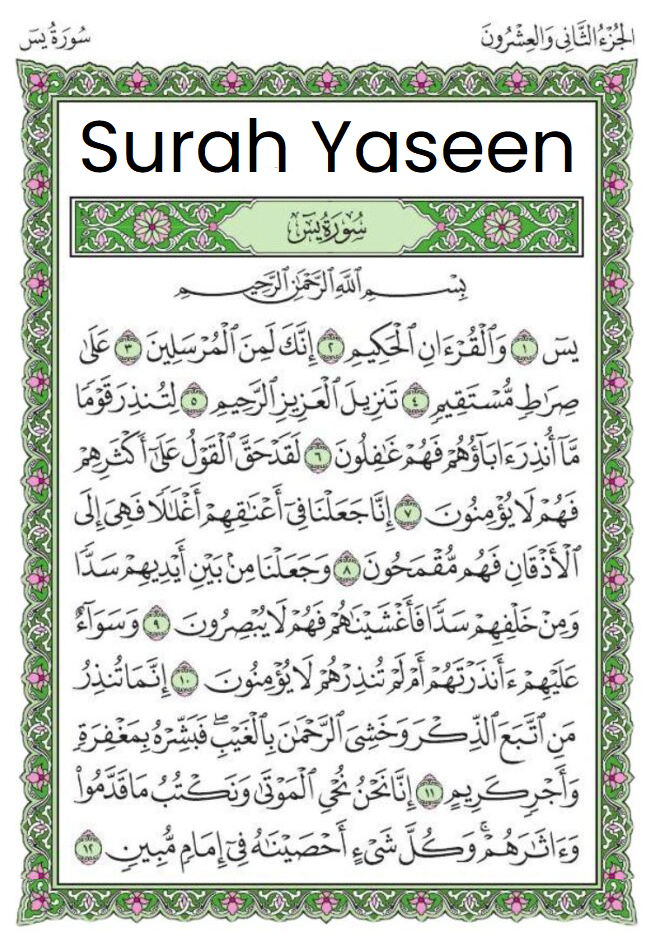 الجُزْءُ الثَّانِي وَالعِشْرُونَ
سُورَةُ يسٓ
Surah Yaseen
سُورَةُ يسٓ
بِسْمِ ٱللَّهِ ٱلرَّحْمَٰنِ ٱلرَّحِيمِ
يسٓ ١ وَٱلْقُرْءَانِ ٱلْحَكِيمِ ٢ إِنَّكَ لَمِنَ ٱلْمُرْسَلِينَ ٣ عَلَىٰ
صِرَٰطٍ مُّسْتَقِيمٍ ٤ تَنزِيلَ ٱلْعَزِيزِ ٱلرَّحِيمِ ٥ لِتُنذِرَ قَوْمًا
مَّآ أُنذِرَ ءَابَآؤُهُمْ فَهُمْ غَٰفِلُونَ ٦ لَقَدْ حَقَّ ٱلْقَوْلُ عَلَىٰٓ أَكْثَرِهِمْ
فَهُمْ لَا يُؤْمِنُونَ ٧ إِنَّا جَعَلْنَا فِىٓ أَعْنَٰقِهِمْ أَغْلَٰلًا فَهِىَ إِلَى
ٱلْأَذْقَانِ فَهُم مُّقْمَحُونَ ٨ وَجَعَلْنَا مِنۢ بَيْنِ أَيْدِيهِمْ سَدًّا
وَمِنْ خَلْفِهِمْ سَدًّا فَأَغْشَيْنَٰهُمْ فَهُمْ لَا يُبْصِرُونَ ٩ وَسَوَآءٌ
عَلَيْهِمْ ءَأَنذَرْتَهُمْ أَمْ لَمْ تُنذِرْهُمْ لَا يُؤْمِنُونَ ١٠ إِنَّمَا تُنذِرُ
مَنِ ٱتَّبَعَ ٱلذِّكْرَ وَخَشِىَ ٱلرَّحْمَٰنَ بِٱلْغَيْبِ ۖ فَبَشِّرْهُ بِمَغْفِرَةٍ
وَأَجْرٍ كَرِيمٍ ١١ إِنَّا نَحْنُ نُحْىِ ٱلْمَوْتَىٰ وَنَكْتُبُ مَا قَدَّمُوا۟
وَءَاثَٰرَهُمْ ۚ وَكُلَّ شَىْءٍ أَحْصَيْنَٰهُ فِىٓ إِمَامٍ مُّبِينٍ ١٢